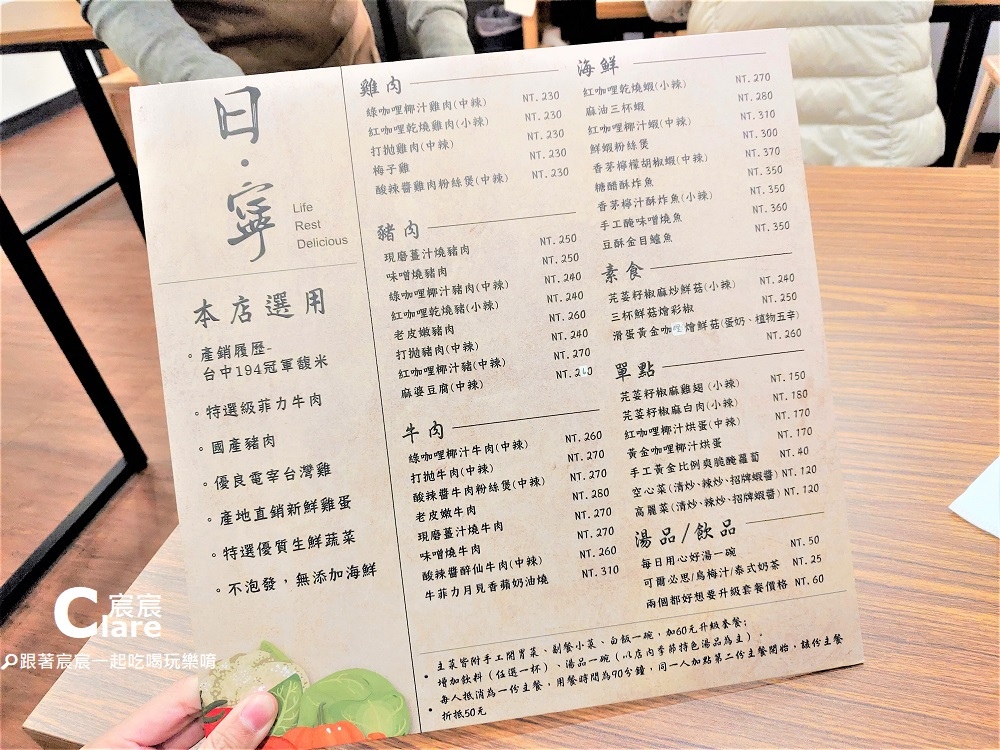 日·寧
Life
Rest
Delicious
本店選用
。產銷履歷-
台中194冠軍馥米
。特選級菲力牛肉
。國產豬肉
。優良電宰台灣雞
。產地直銷新鮮雞蛋
。特選優質生鮮蔬菜
。不泡發，無添加海鮮
雞肉
綠咖哩椰汁雞肉(中辣) NT. 230
紅咖哩乾燒雞肉(小辣) NT. 230
打拋雞肉(中辣) NT. 230
梅子雞 NT. 230
酸辣醬雞肉粉絲煲(中辣) NT. 230
豬肉
現磨薑汁燒豬肉 NT. 250
味噌燒豬肉 NT. 250
綠咖哩椰汁豬肉(中辣) NT. 240
紅咖哩乾燒豬(小辣) NT. 240
老皮嫩豬肉 NT. 260
打拋豬肉(中辣) NT. 240
紅咖哩椰汁豬(中辣) NT. 270
麻婆豆腐(中辣)
牛肉
綠咖哩椰汁牛肉(中辣) NT. 260
打拋牛肉(中辣) NT. 270
酸辣醬牛肉粉絲煲(中辣) NT. 270
老皮嫩牛肉 NT. 280
現磨薑汁燒牛肉 NT. 270
味噌燒牛肉 NT. 270
酸辣醬醉仙牛肉(中辣) NT. 260
牛菲力月見香蘋奶油燒 NT. 310
海鮮
紅咖哩乾燒蝦(小辣) NT. 270
麻油三杯蝦 NT. 280
紅咖哩椰汁蝦(中辣) NT. 310
鮮蝦粉絲煲 NT. 300
香茅檸檬胡椒蝦(中辣) NT. 370
糖醋酥炸魚 NT. 350
香茅檸汁酥炸魚(小辣) NT. 350
手工醃味噌燒魚 NT. 360
豆酥金目鱸魚 NT. 350
素食
芫荽籽椒麻炒鮮菇(小辣) NT. 240
三杯鮮菇燴彩椒 NT. 250
滑蛋黃金咖哩燴鮮菇(蛋奶、植物五辛)
NT. 260
單點
芫荽籽椒麻雞翅(小辣) NT. 150
芫荽籽椒麻白肉(小辣) NT. 180
紅咖哩椰汁烘蛋(中辣) NT. 170
黃金咖哩椰汁烘蛋 NT. 170
手工黃金比例爽脆醃蘿蔔 NT. 40
空心菜(清炒、辣炒、招牌蝦醬) NT. 120
高麗菜(清炒、辣炒、招牌蝦醬) NT. 120
湯品/飲品
每日用心好湯一碗 NT. 50
可爾必思/烏梅汁/泰式奶茶 NT. 25
兩個都好想要升級套餐價格 NT. 60
• 主菜皆附手工開胃菜、副餐小菜、白飯一碗，加60元升級套餐；
增加飲料（任選一杯）、湯品一碗（以店內季節特色湯品為主）。
• 每人抵消為一份主餐，用餐時間為90分鐘，同一人加點第二份主餐開始，該份主餐
折抵50元
Clare
宸宸
跟著宸宸一起吃喝玩樂唷